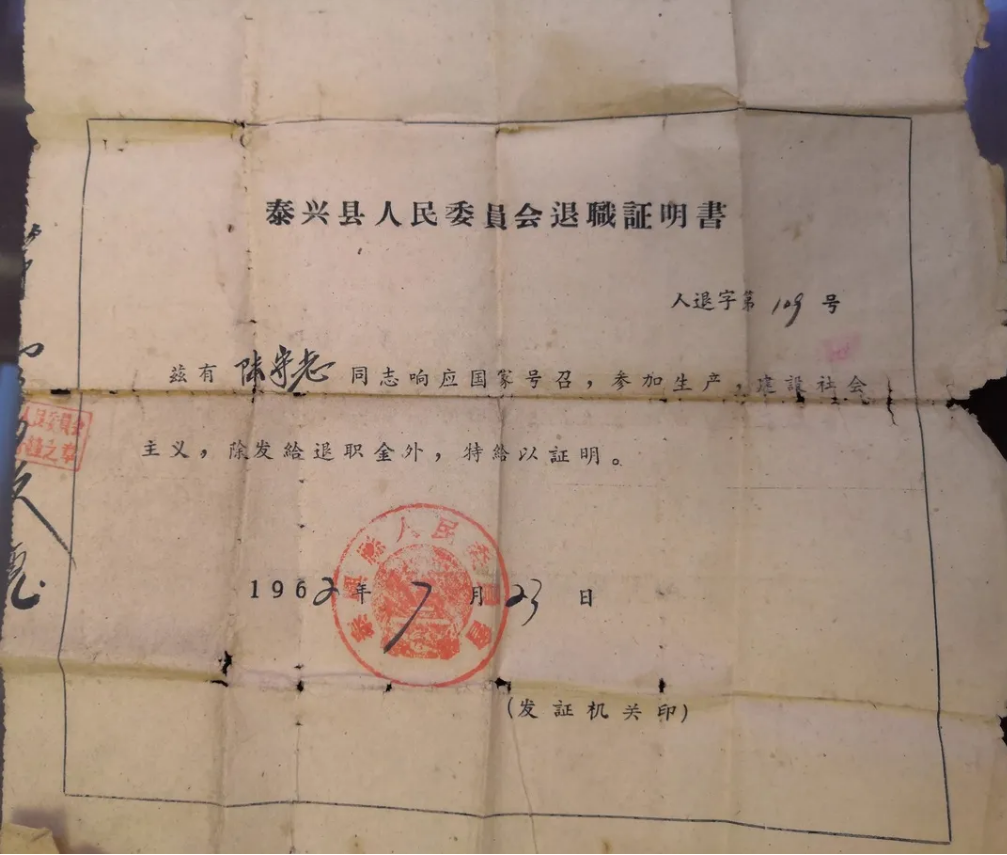 泰兴县人民委員会退職証明書
人退字第109号
兹有陆守志同志响应国家号召，参加生产，建設社会
主义，除发給退职金外，特給以証明。
泰興縣人民委員會
1962年7月23日
(发証机关印)
人民委員会
之章